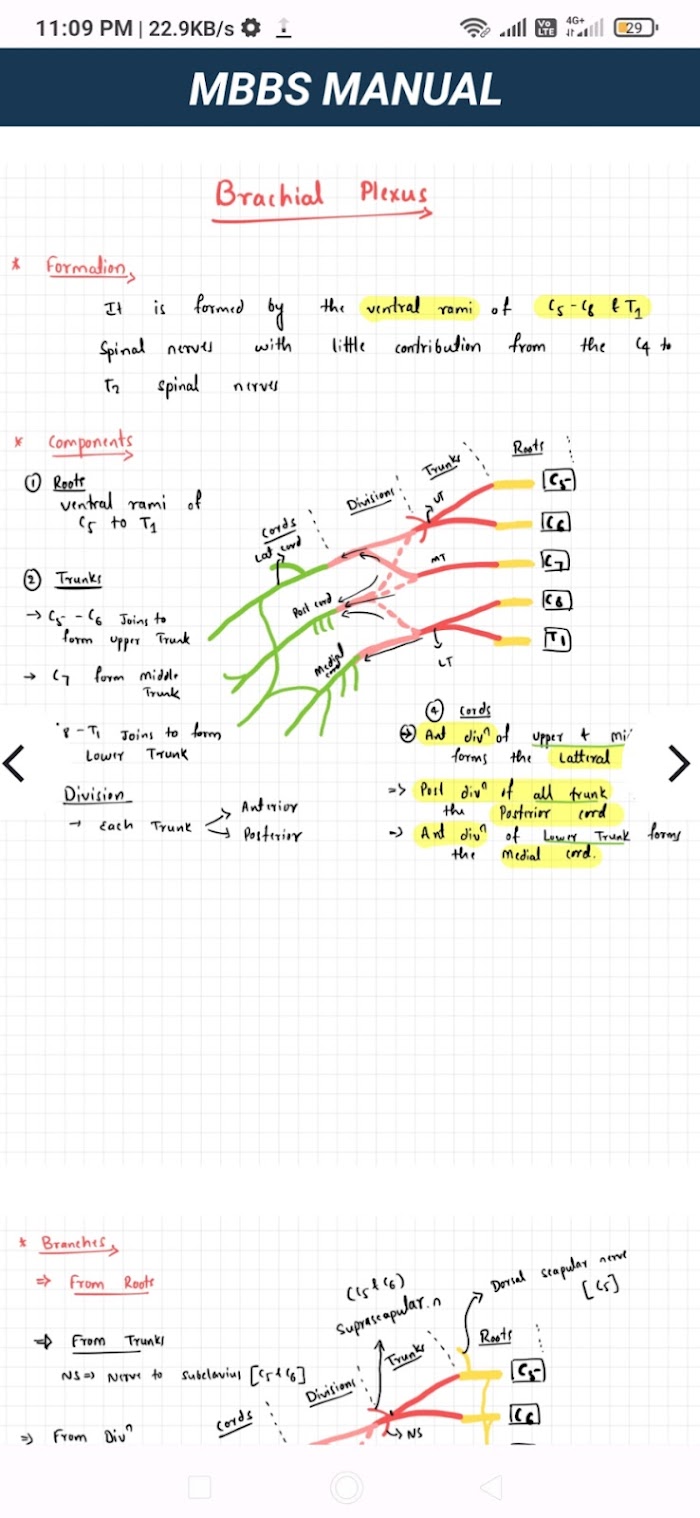 11:09 PM | 22.9KB/s
Vo LTE 4G+ 29
MBBS MANUAL
Brachial Plexus
* Formation
It is formed by the ventral rami of C5-C8 & T1
Spinal nerves with little contribution from the C4 to
T2 spinal nerves
* Components
① Roots
ventral rami of
C5 to T1
② Trunks
→ C5 - C6 Joins to
form upper Trunk
→ C7 form middle
Trunk
8 - T1 Joins to form
Lower Trunk
Division
→ Each Trunk
Anterior
Posterior
Roots
Trunks
Divisions
Cords
Lat cord
Post cord
Medial cord
UT
MT
LT
C5
C6
C7
C8
T1
④ Cords
⇒ Ant divn of upper + mi
forms the Latteral
=> Post divn of all trunk
the Posterior cord
→ Ant divn of Lower Trunk forms
the Medial cord.
* Branches
⇒ From Roots
⇒ From Trunks
NS => Nerve to subclavius [C5+C6]
⇒ From Divn
(C5 & C6)
Suprascapular.n
Dorsal scapular nerve
[C5]
Roots
Trunks
Divisions
Cords
C5
C6
NS